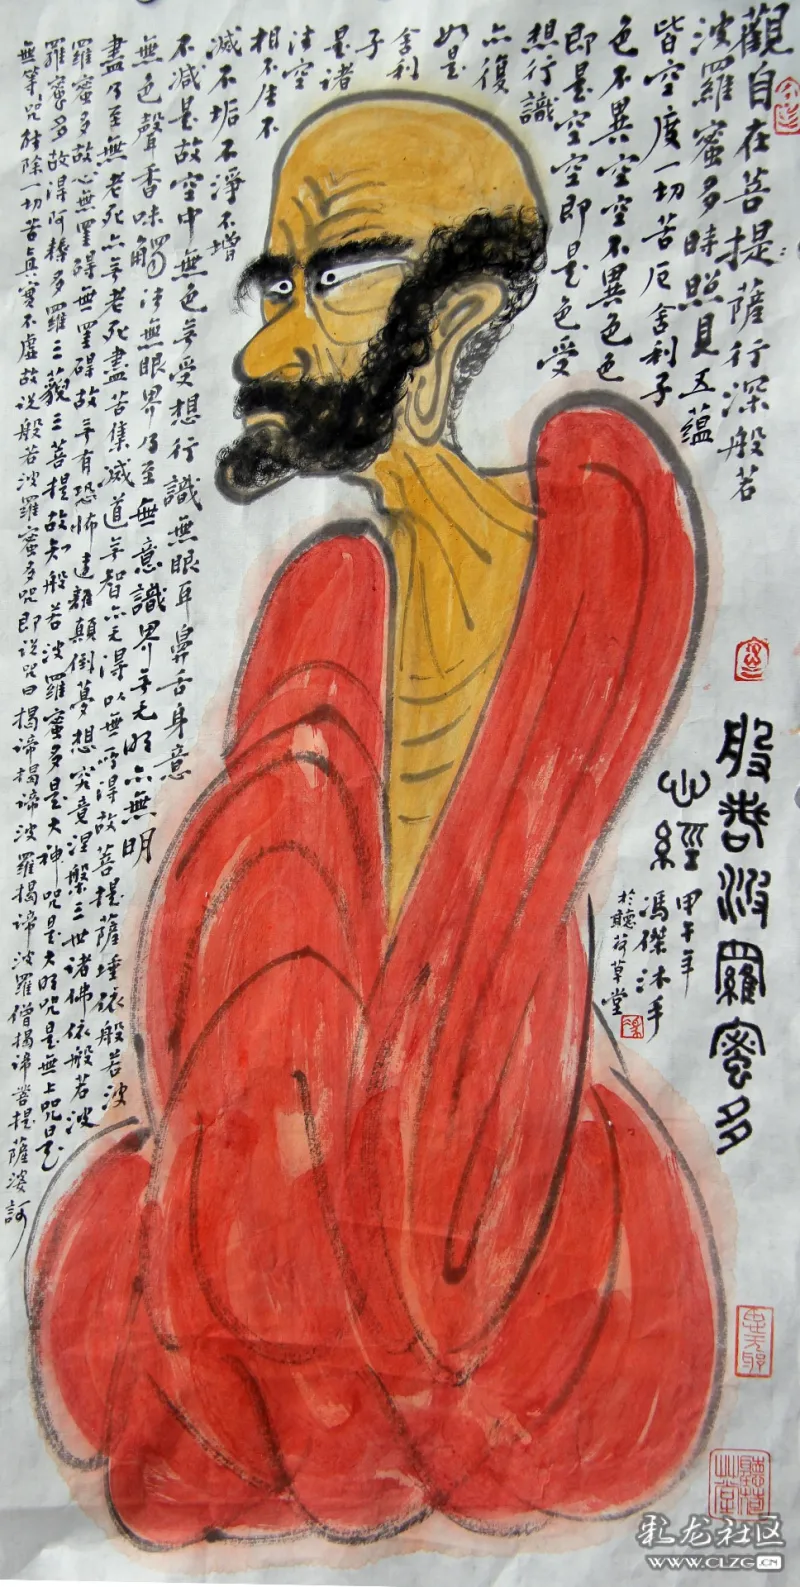 觀自在菩提薩行深般若
波羅蜜多時照見五蘊
皆空度一切苦厄舍利子
色不異空空不異色色
即是空空即是色受
想行識
亦復
如是
舍利
子
是諸
法空
相不生不
滅不垢不淨不增
不減是故空中無色无受想行識無眼耳鼻舌身意
無色聲香味觸法無眼界乃至無意識界无无明亦無明
盡乃至無老死亦无老死盡苦集滅道无智亦无得以無所得故菩提薩埵依般若波
羅蜜多故心無罣礙無罣礙故无有恐怖遠離顛倒夢想究竟涅槃三世諸佛依般若波
羅蜜多故得阿耨多羅三藐三菩提故知般若波羅蜜多是大神咒是大明咒是無上咒是
無等咒能除一切苦真實不虛故説般若波羅蜜多咒即説咒曰揭諦揭諦波羅揭諦波羅僧揭諦菩提薩婆訶
般若波羅蜜多
心經
甲午年
馮傑沐手
於聽荷草堂
彩龙社区
WWW.CLZG.CN